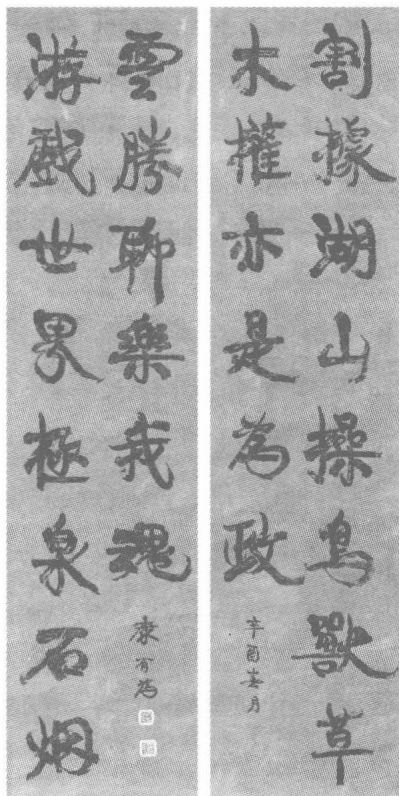 割據湖山操鳥獸草
木權亦是為政
辛酉春月
游戲世界極泉石烟
雲勝聊樂我魂
康有為